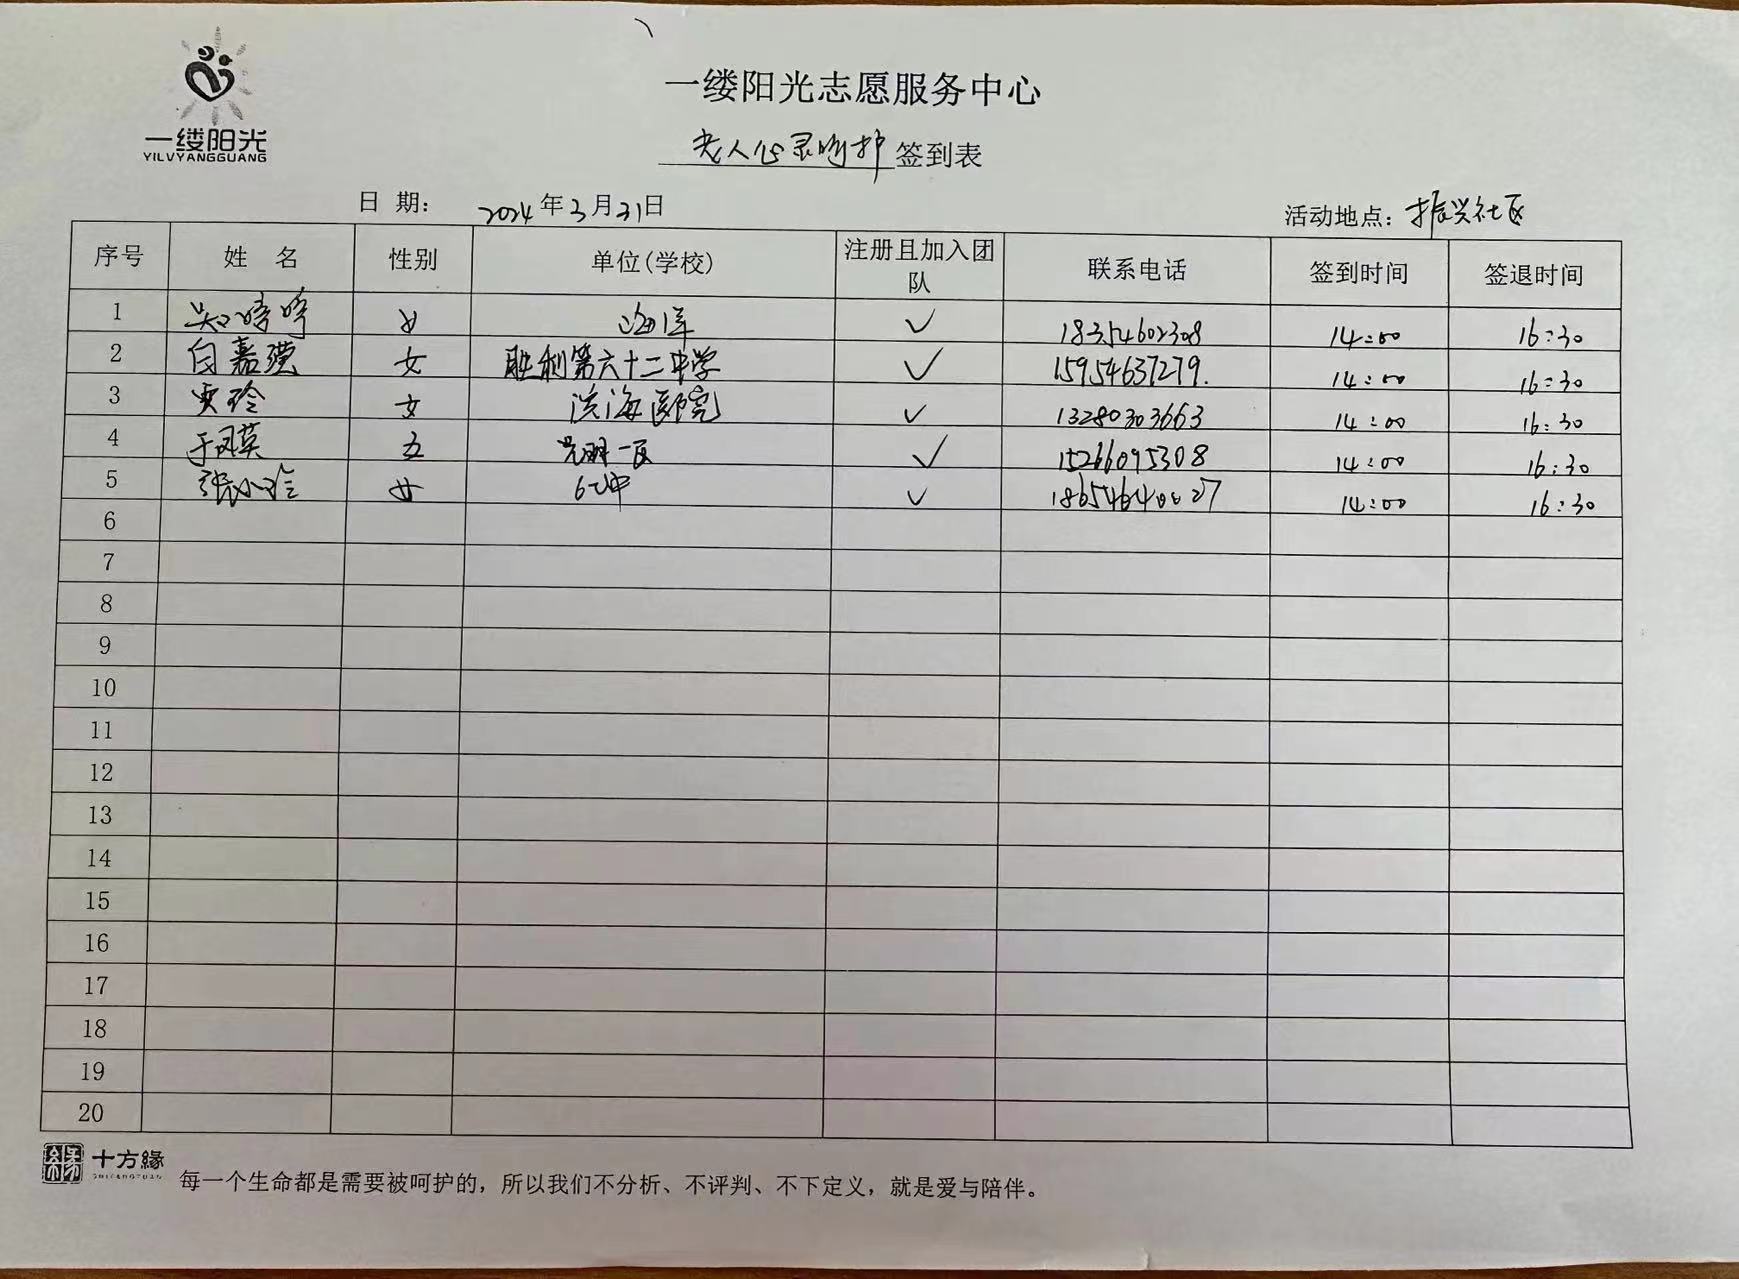 一缕阳光
YILVYANGGUANG
一缕阳光志愿服务中心
老人心灵呵护 签到表
日 期: 2024年3月31日 活动地点: 振兴社区
序号 姓 名 性别 单位(学校) 注册且加入团队 联系电话 签到时间 签退时间
1 女 海洋 ✓ 18354602308 14:00 16:30
2 白嘉 女 胜利第六十二中学 ✓ 15954637279. 14:00 16:30
3 贾玲 女 滨海医院 ✓ 13280303663 14:00 16:30
4 于凤英 女 ✓ 15266095308 14:00 16:30
5 张小玲 女 ✓ 18654640027 14:00 16:30
6
7
8
9
10
11
12
13
14
15
16
17
18
19
20
十方緣
SHIFANGYUAN
每一个生命都是需要被呵护的，所以我们不分析、不评判、不下定义，就是爱与陪伴。